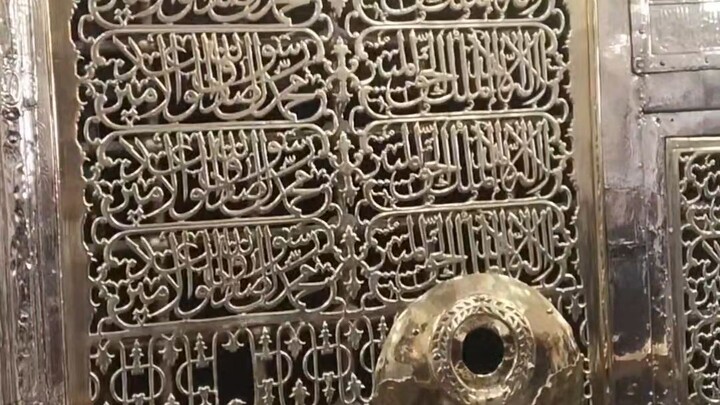 لا إله إلا الله الملك الحق المبين محمد رسول الله الصادق الوعد الأمين
لا إله إلا الله الملك الحق المبين محمد رسول الله الصادق الوعد الأمين
لا إله إلا الله الملك الحق المبين محمد رسول الله الصادق الوعد الأمين